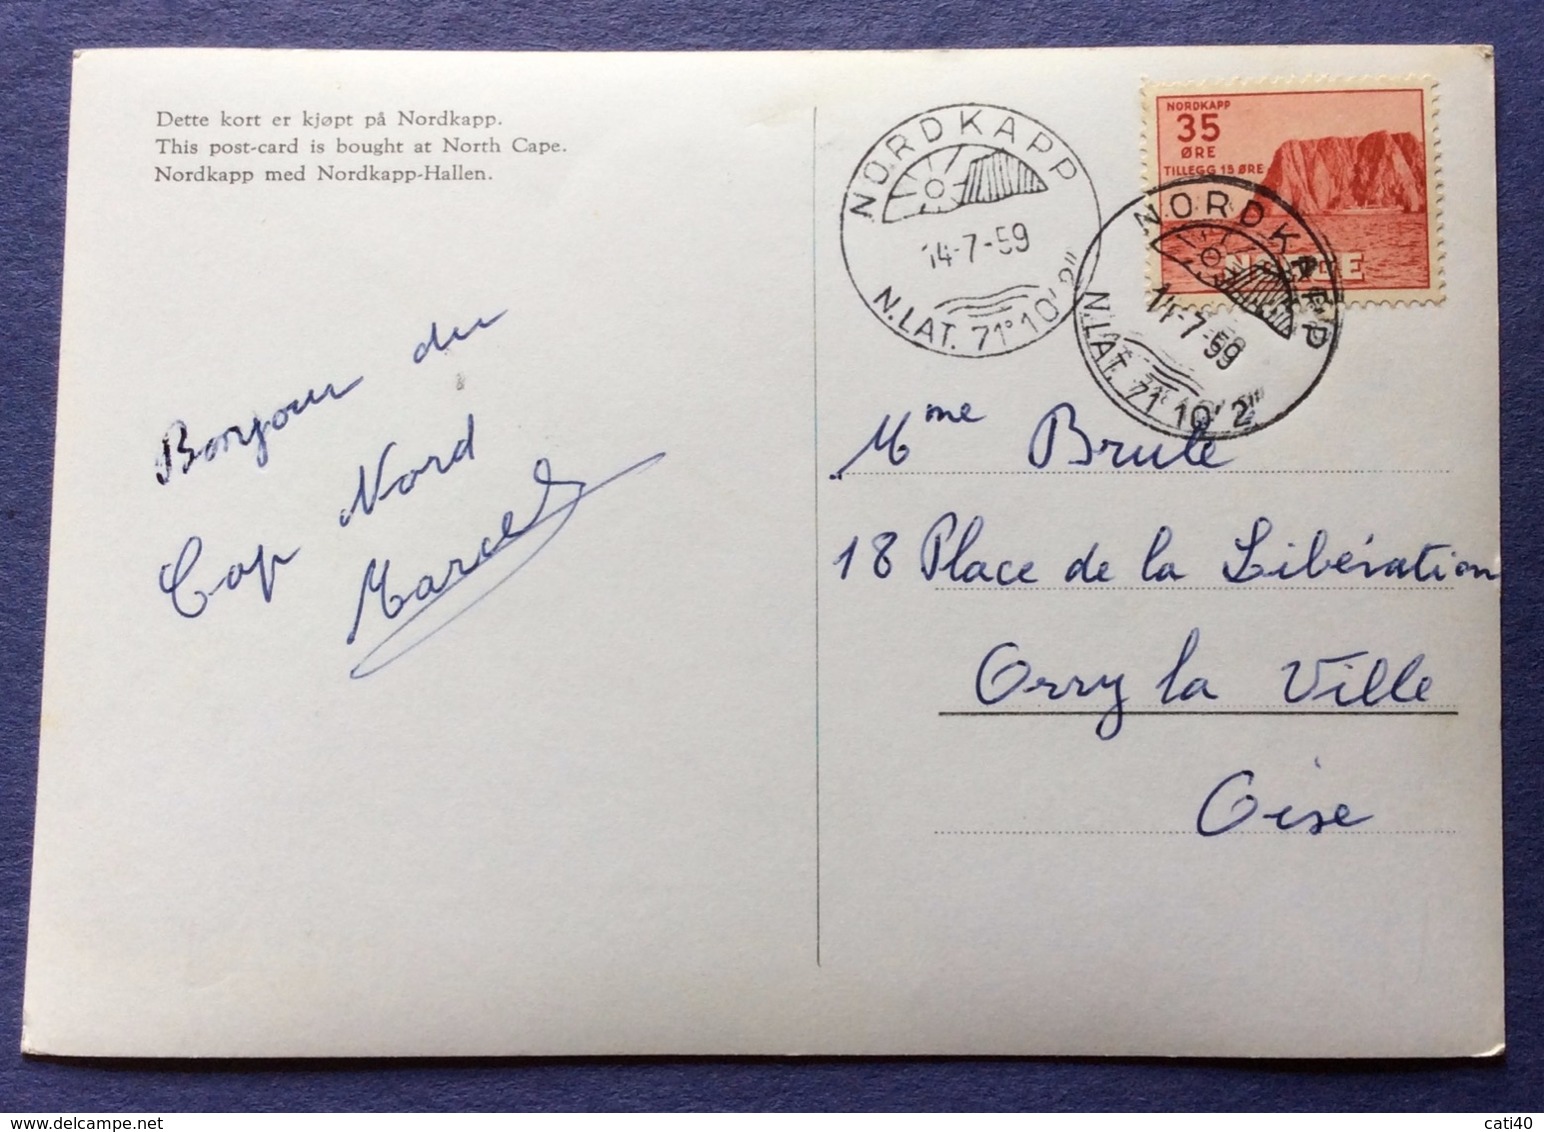 Dette kort er kjøpt på Nordkapp.
This post-card is bought at North Cape.
Nordkapp med Nordkapp-Hallen.
Bonjour du
Cap Nord
Marcel
NORDKAPP
14-7-59
N.LAT. 71°10'2"
NORDKAPP
35
ØRE
TILLEGG 15 ØRE
NORGE
NORDKAPP
14-7-59
N.LAT. 71°10'2"
Mme Brule
18 Place de la Libération
Orry la Ville
Oise
cati40